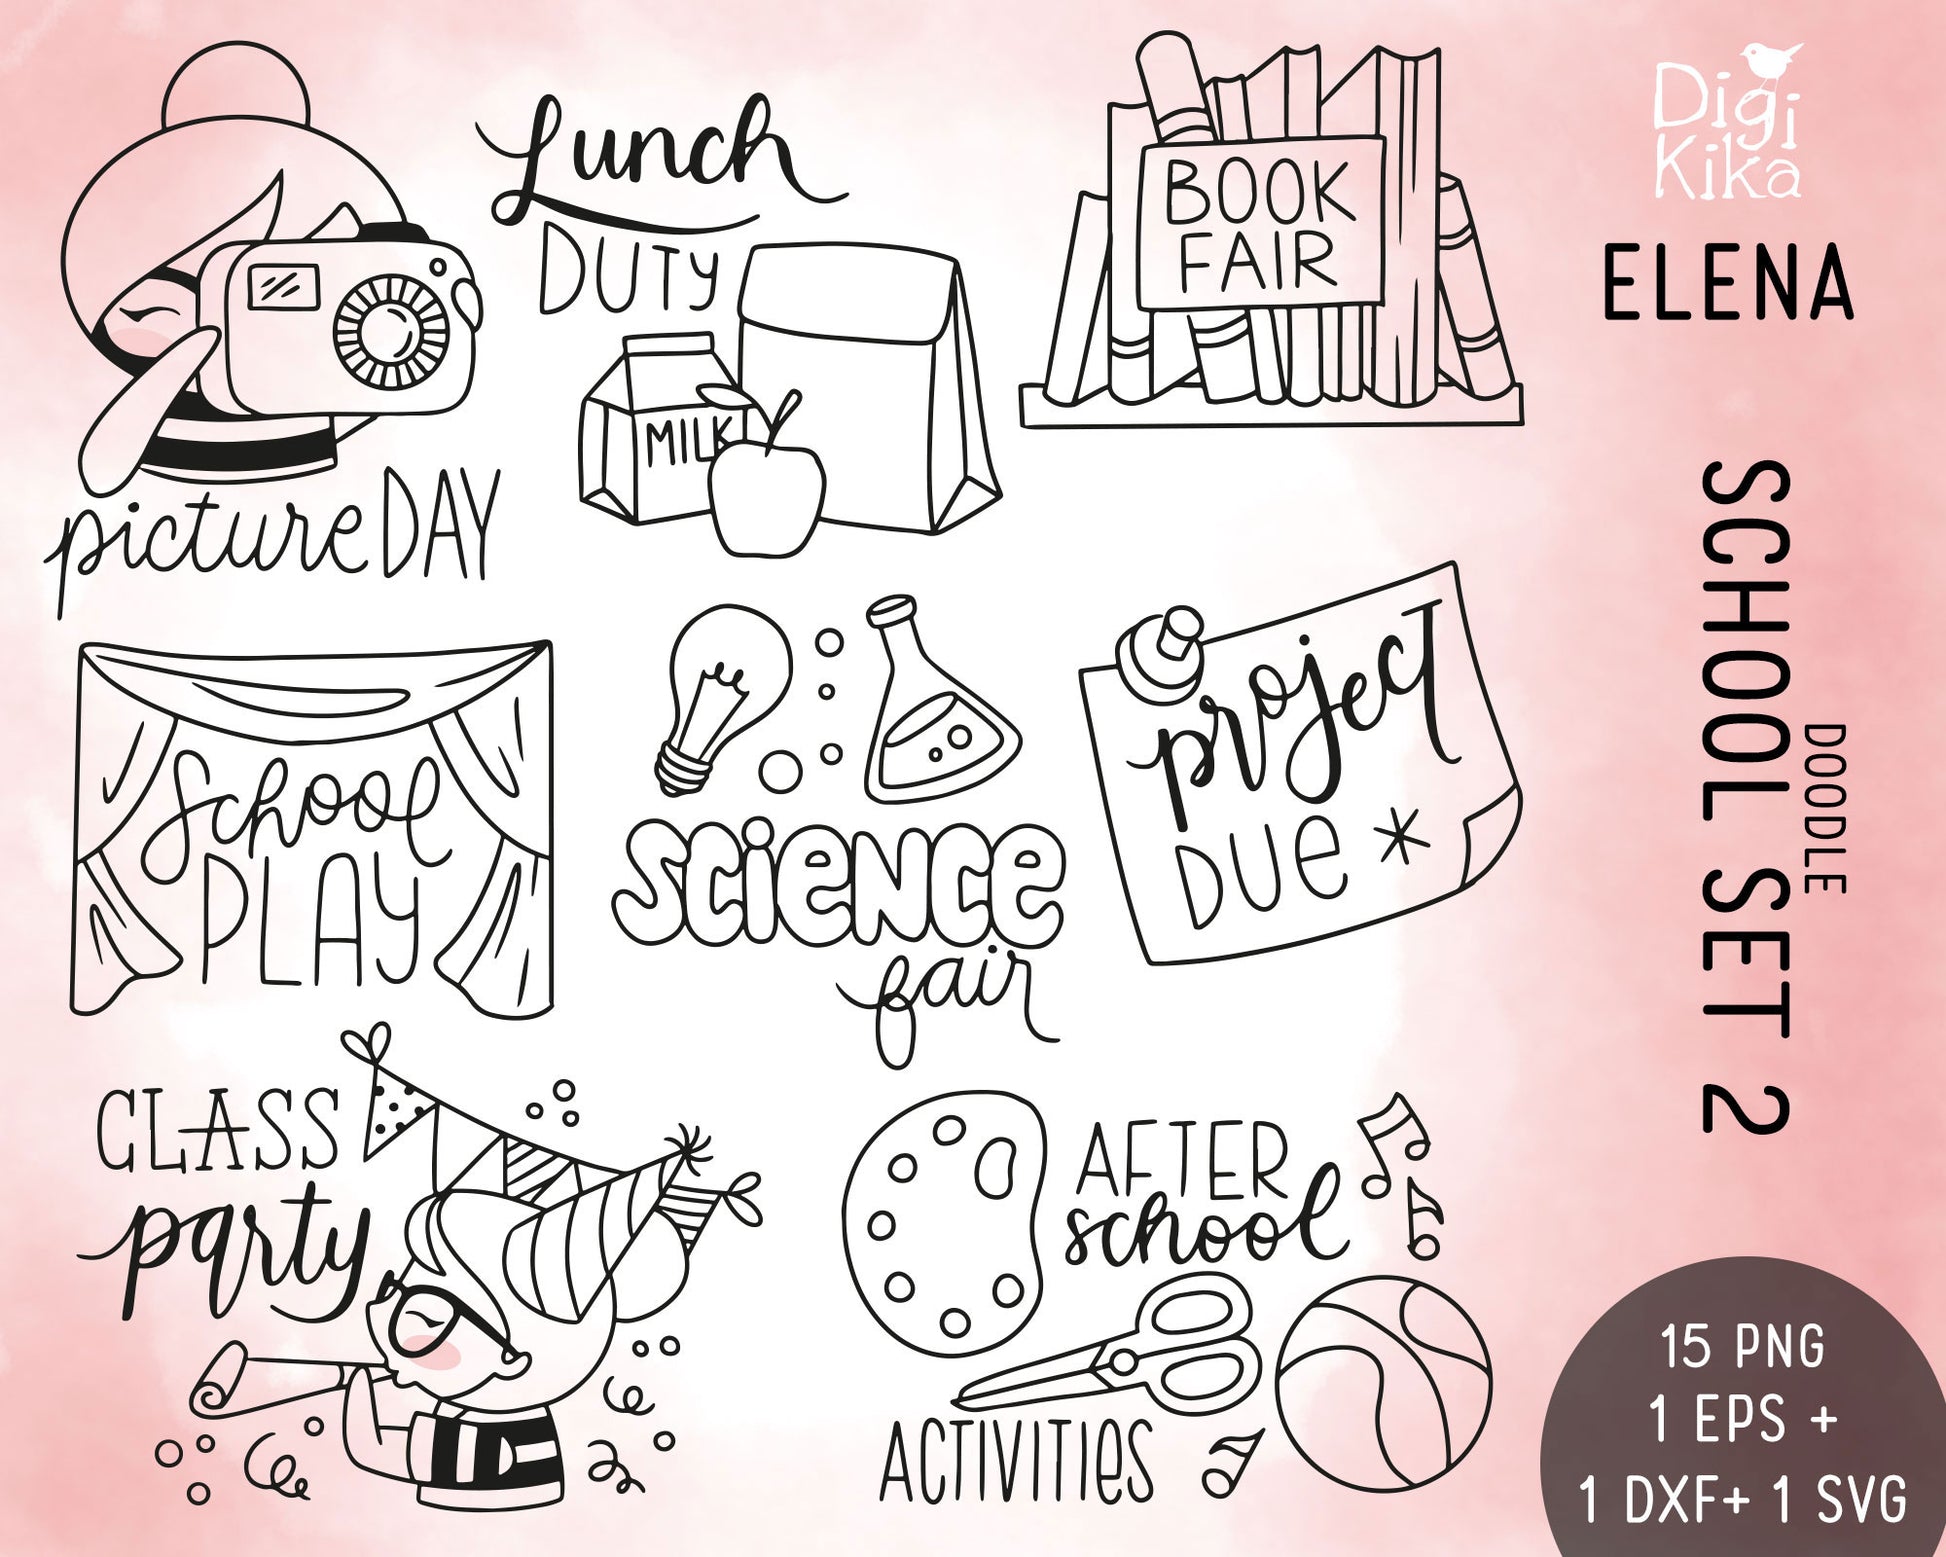 Lunch
DUTY
MILK
pictureDAY
BOOK
FAIR
School
PLAY
SCieNCe
fair
project
DUe
CLASS
party
AFTER
school
ACTIVITIeS
Digi
Kika
ELENA
SCHOOL SET 2
DOODLE
15 PNG
1 EPS +
1 DXF+ 1 SVG